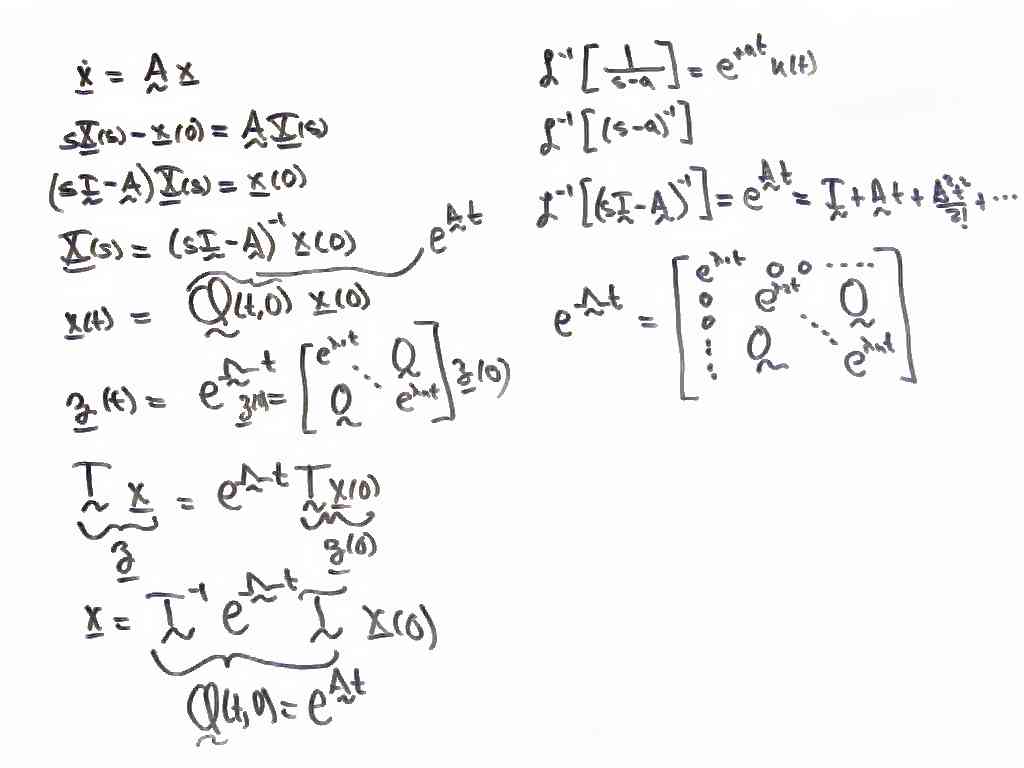 ẋ = A x
sX(s) - x(0) = A X(s)
(sI - A) X(s) = x(0)
X(s) = (sI - A)⁻¹ x(0)
e^{At}
x(t) = Φ(t,0) x(0)
z(t) = e^{Λt} z(0) = [e^{λ₁t} ⋱ 0 0 e^{λₙt}] z(0)
T x = e^{Λt} T x(0)
z z(0)
x = T⁻¹ e^{Λt} T x(0)
Φ(t,0) = e^{At}
ℒ⁻¹[1/(s-a)] = e^{+at} u(t)
ℒ⁻¹[(s-a)⁻¹]
ℒ⁻¹[(sI - A)⁻¹] = e^{At} = I + At + A²t²/2! + ...
e^{Λt} = [e^{λ₁t} 0 0 .....
0 e^{λ₂t} 0
0 ⋱
⋮ 0 e^{λₙt}]